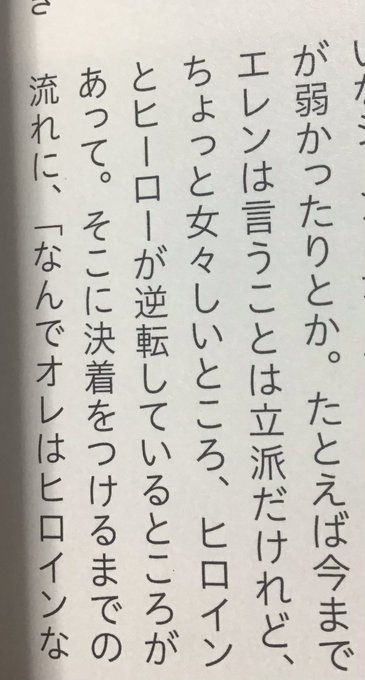 が弱かったりとか。たとえば今まで
エレンは言うことは立派だけれど、
ちょっと女々しいところ、ヒロイン
とヒーローが逆転しているところが
あって。そこに決着をつけるまでの
流れに、「なんでオレはヒロインな
さ